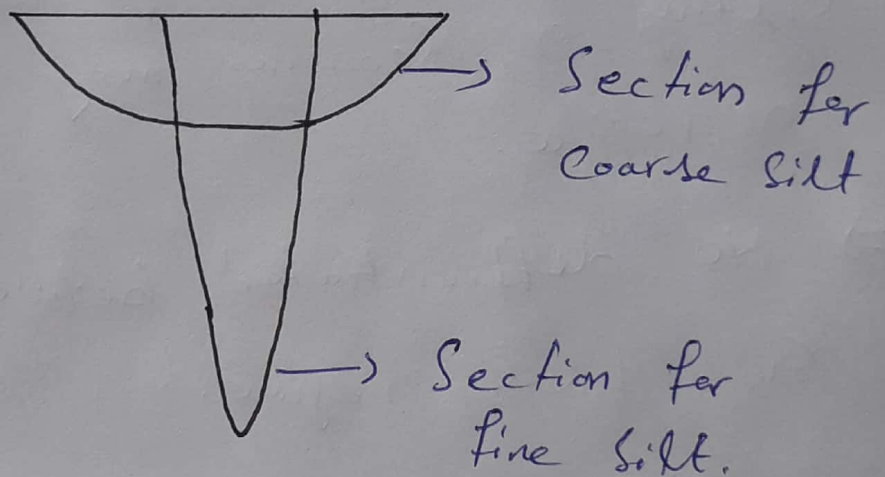 Section for
Coarse Silt
Section for
fine silt.